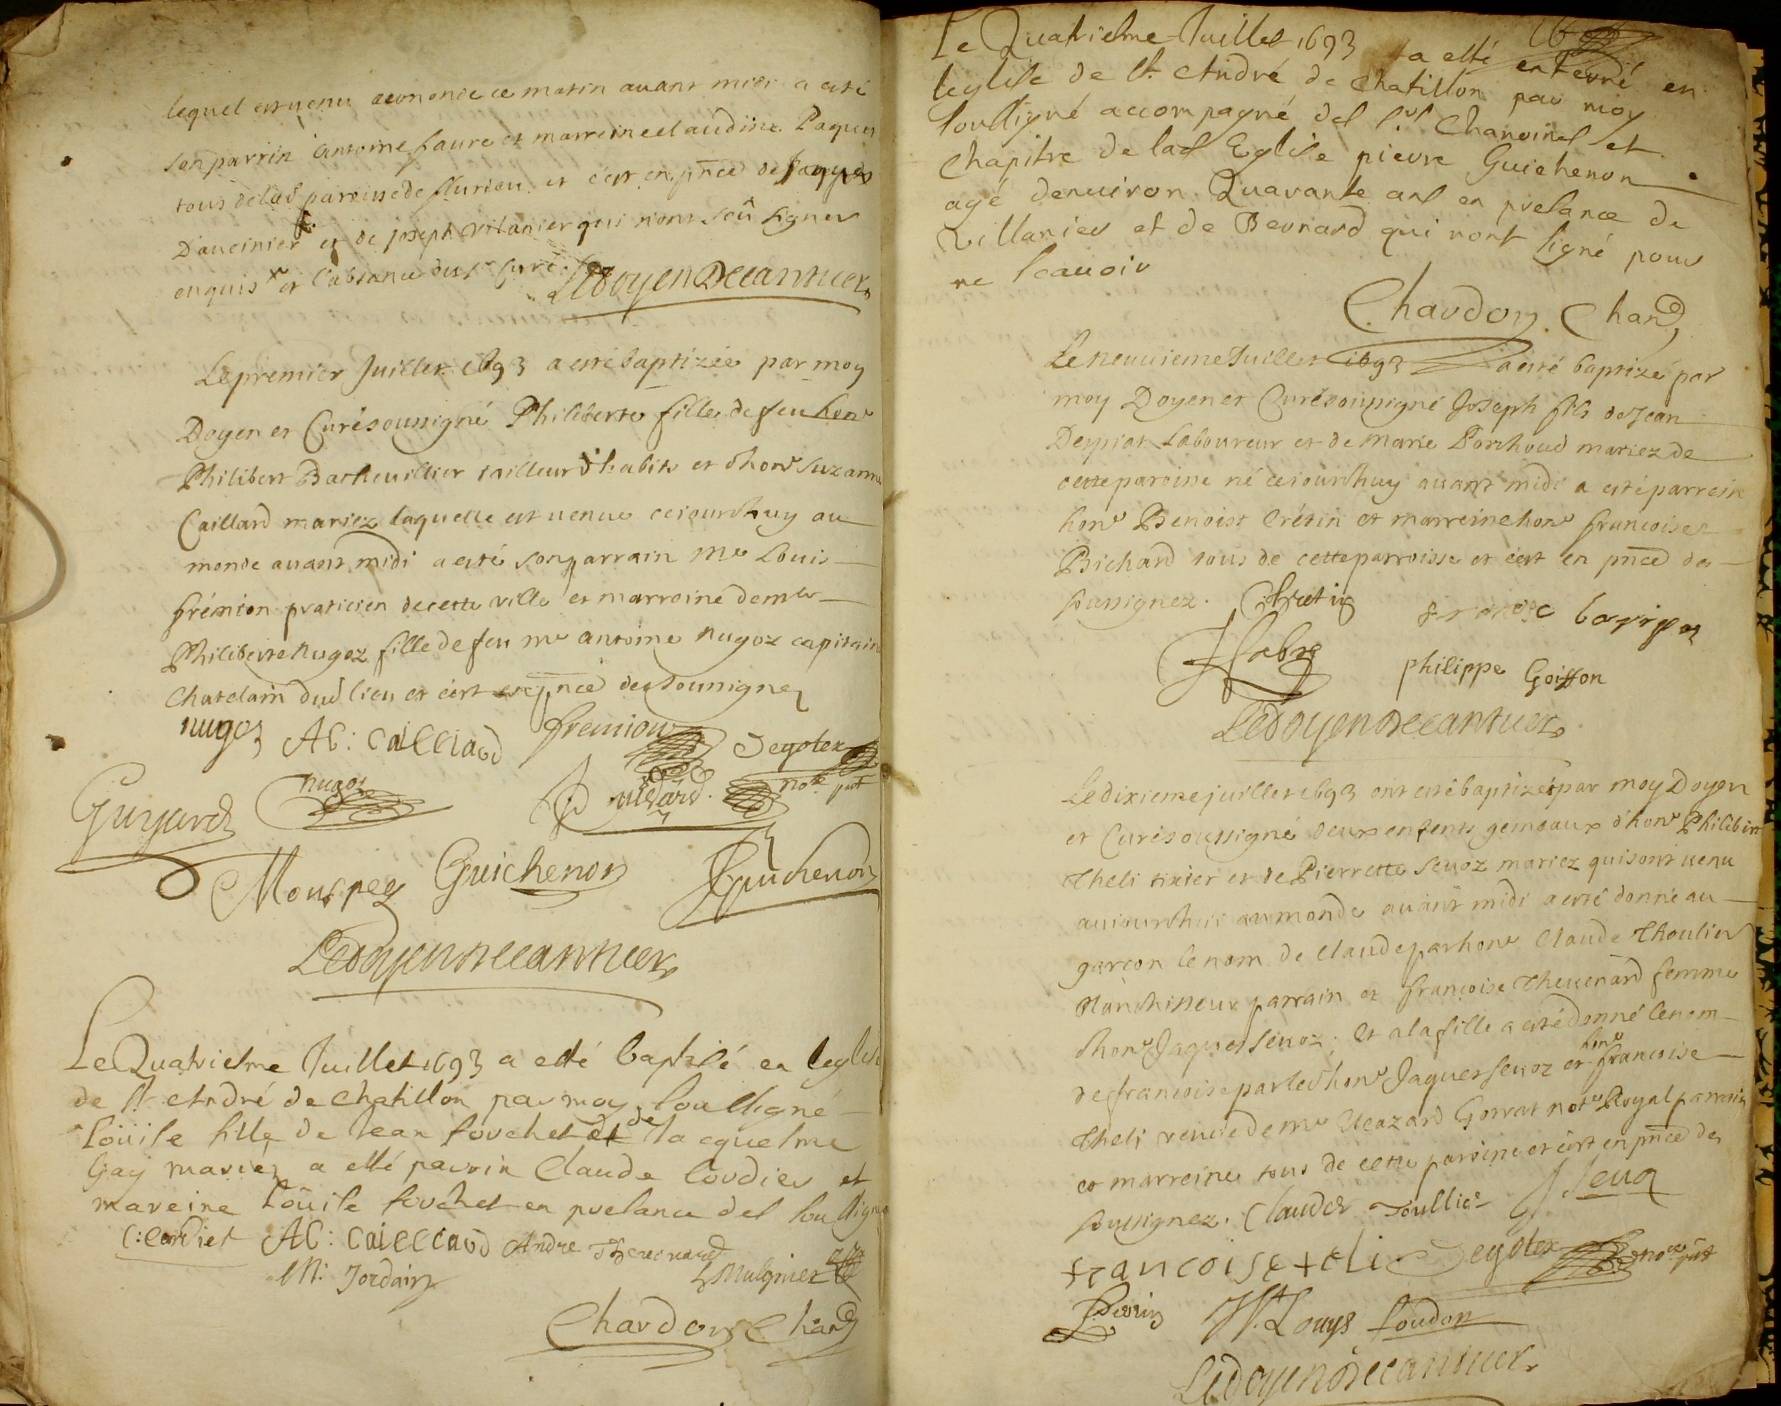 lequel est uenu au monde ce matin auant midi a esté
son parrin Antoine faure et marreine claudine Paques
tous de lad paroisse de fluricu et c'est en pnce de Jaques
Daucinier et de joseph vilanier qui n'ont sceû signer
enquis et l'absance du sr curé
Ledoyen Decannier
Le premier Juillet 1693 a esté baptizée par moy
Doyen et Curé soussigné Philiberte fille de feu hone
Philibert Batheuillier tailleur d'habits et d'hone Suzanne
Caillard mariez laquelle est uenue ceiourdhuy au
monde auant midi a esté son parrain Me Louis
frémion praticien de cette ville et marreine demlle
Philiberte nugoz fille de feu me antoine nugoz capitain
Chatelain dud lieu et c'est en pnce des soussignez
nugoz AC: Cailliard fremion Segolex
Guyard nugoz notre pnt
Mouspey Guichenon Guichenon
Ledoyen Decannier
Le Quatriesme Juillet 1693 a esté baptisé en leglise
de St André de Chatillon par moy soussigné
Loüise fille de Jean fouchet et de Jacquesme
Gay mariez a esté parrin Claude Cordier et
mareine Loüise fouchet en presance des soussignez
C: Cordiet AC: Cailliard Andre Thevenard
M: Jordain Mulgnier
Chardon Chane
Le Quatriesme Juillet 1693 a esté enterré en
leglise de St. André de Chatillon par moy
soussigné accompagné des srs Chanoines et
Chapitre de lad Eglise pierre Guichenon
agé denuiron Quarante ans en presance de
Villanier et de Bernard qui nont signé pour
ne scauoir
Chardon. Chane
Le neuuieme Juillet 1693 a esté baptizé par
moy Doyen et Curé soussigné Joseph fils de Jean
Deypiat Laboureur et de Marie Porchoud mariez de
cette paroisse né ceiourdhuy auant midi a esté parrein
hone Benoist Crétin et marreine hone francoise
Bichard tous de cette parroisse et c'est en pnce des
soussignez. Cretin
philippe Goiffon
Ledoyen Decannier
Le dixieme juillet 1693 ont esté baptizés par moy Doyen
et Curé soussigné deux enfents gemeaux d'hone Philibert
Theli tixier et de Pierrette Seuoz mariez qui sont uenu
auiourdhui au monde auant midi a esté donné au
garcon le nom de Claude par hone Claude Thoulier
Blanchisseur parrain et françoise Theuenard femme
d'hone Jaques Seuoz; et a la fille a esté donné le nom
de francoise par led hone Jaques Seuoz et hone francoise
Theli veuue de me Leazard Gorrat notre Royal parrain
et marreine tous de cette paroisse et c'est en pnce des
soussignez. Claude Toullier J Seuoz
francoise teli Segolex notre pnt
Perrin H. Louys Loudon
Ledoyen Decannier